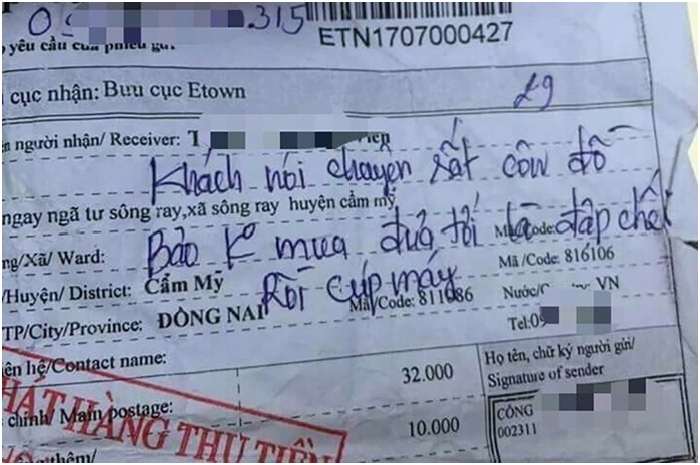 0 315
ETN1707000427
yêu cầu của phiếu gửi
cục nhận: Bưu cục Etown
29
người nhận/ Receiver: T
Khách nói chuyện rất côn đồ
ngay ngã tư sông ray,xã sông ray huyện cẩm mỹ
Bảo ko mua đưa tới là đập chết
ng/Xã/ Ward: Mã/Code:
Rồi cúp máy
/Huyện/ District: Cẩm Mỹ Mã /Code: 816106
TP/City/Province: ĐỒNG NAI Mã/Code: 811086 Nước/C VN
Tel:09
ên hệ/Contact name:
32.000
Họ tên, chữ ký người gửi/
Signature of sender
HÁT HÀNG THU TIỀN
chính/ Main postage:
10.000
CÔNG
002311
thêm/